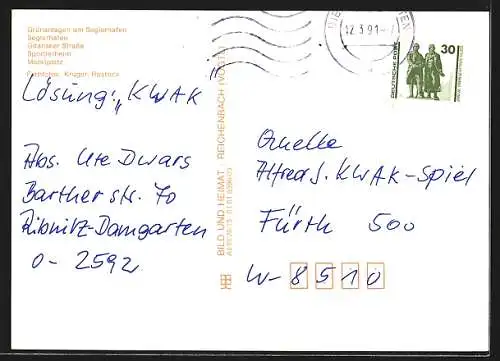 Grünanlagen am Seglerhafen
Seglerhafen
Straße
Sportlerheim
Marktplatz
Farbfotos: Krüger, Rostock
Lösung: „KWAK"
Abs. Ute Dwars
Barther Str. 70
Ribnitz-Damgarten
O-2592
BILD UND HEIMAT REICHENBACH (VOGTL)
12.3.91
DEUTSCHE POST
30
Quelle
Alfred J. KWAK-Spiel
Fürth 500
W-8510